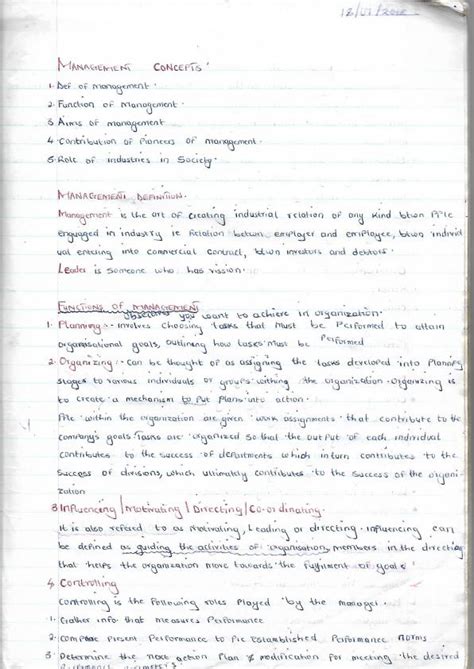 MANAGEMENT CONCEPTS.
1. Def of management.
2. Function of management.
3. Aims of management
4. Contribution of Pioneers of management.
5. Role of industries in Society.
MANAGEMENT DEFINITION.
Management is the art of creating industrial relation of any kind btwn PPle
engaged in industry ie Relation between employer and employee, btwn individ
ual entering into commercial contract, btwn investors and debtors.
Leader is someone who has vission.
FUNCTIONS OF MANAGEMENT
you want to achieve in organization.
1. Planning:- involves choosing tasks that must be Performed to attain
organisational goals, outlining how tasks must be Performed
2. Organizing:- can be thought of as assigning the tasks developed into Planning
stages to various individuals or groups withing the organization. Organizing is
to create a mechanism to put Plans into action.
PPle within the organization are given work assignments that contribute to the
company's goals. Tasks are organized so that the output of each individual
contributes to the success of departments which inturn contributes to the
success of divisions, which ultimately contributes to the success of the organi-
zation
3. Influencing / Motivating / Directing / Co-ordinating.
It is also refered to as Motivating, Leading or directing. influencing can
be defined as guiding the activities of organisation members in the direction
that helps the organization move towards the fulfilment of goals
4. Controlling
Controlling is the following roles played by the manager.
1. Gather info that measures Performance
2. compare present Performance to Pre established Performance norms
3. Determine the next action plan & modification for meeting the desired